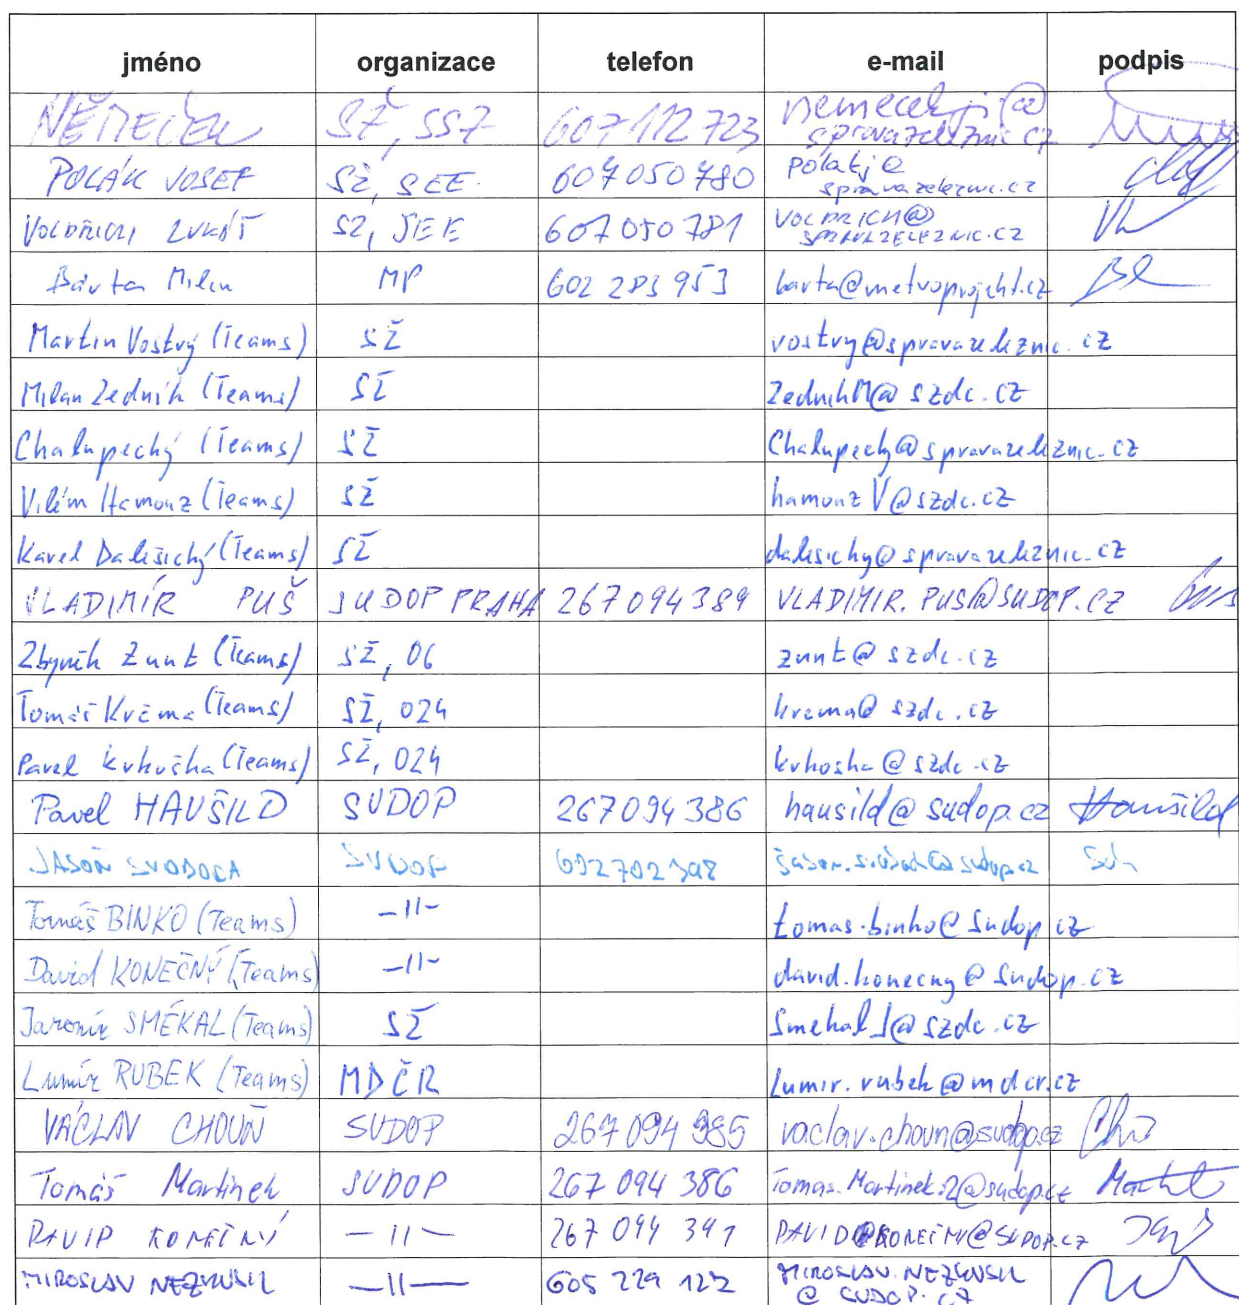 jméno organizace telefon e-mail podpis
NĚMEČEK SŽ, SSZ 607 112 723 nemecekji@
spravazeleznic.cz
POLÁK JOSEF SŽ, SEE 607 050 780 polakj@
spravazeleznic.cz
VOLDŘICH LUKÁŠ SŽ, SEE 607 050 781 VOLDRICH@
SPRAVAZELEZNIC.CZ
Bárta Milan MP 602 283 953 barta@metroprojekt.cz
Martin Vostrý (Teams) SŽ vostry@spravazeleznic.cz
Milan Zedník (Teams) SŽ ZednikM@szdc.cz
Chalupecký (Teams) SŽ Chalupecky@spravazeleznic.cz
Vilém Hamouz (Teams) SŽ hamouzV@szdc.cz
Karel Dalešický (Teams) SŽ dalesicky@spravazeleznic.cz
VLADIMÍR PUŠ SUDOP PRAHA 267094389 VLADIMIR.PUS@SUDOP.CZ
Zbyněk Zunt (Teams) SŽ, 06 zunt@szdc.cz
Tomáš Krčma (Teams) SŽ, 024 krcma@szdc.cz
Pavel Krkoška (Teams) SŽ, 024 krkoska@szdc.cz
Pavel HAUŠILD SUDOP 267094386 hausild@sudop.cz Haušild
JASOŇ SVOBODA SUDOP 602702398
Tomáš BINKO (Teams) -11- tomas.binko@sudop.cz
David KONEČNÝ (Teams) -11- david.konecny@sudop.cz
Jaromír SMÉKAL (Teams) SŽ SmekalJ@szdc.cz
Lumír RUBEK (Teams) MDČR lumir.rubek@mdcr.cz
VÁCLAV CHOUŇ SUDOP 267 094 385 vaclav.choun@sudop.cz
Tomáš Martinek SUDOP 267 094 386 Tomas.Martinek.2@sudop.cz
DAVID KONEČNÝ -11- 267 094 341 DAVID.KONECNY@SUDOP.CZ
MIROSLAV NEZKUSIL -11- 605 229 122 MIROSLAV.NEZKUSIL
@SUDOP.CZ